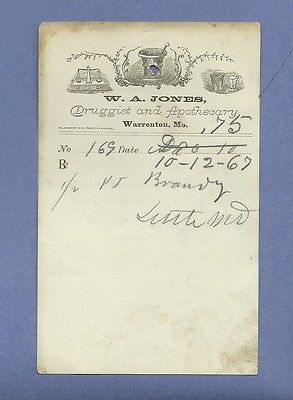 W. A. JONES,
Druggist and Apothecary
Warrenton, Mo.
.75
No 169 Date Dec 10
10-12-67
R
1/2 pt Brandy
Little MD